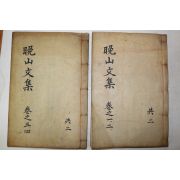 晩山文集
卷之一二
共二
晩山文集
卷之三四
共二